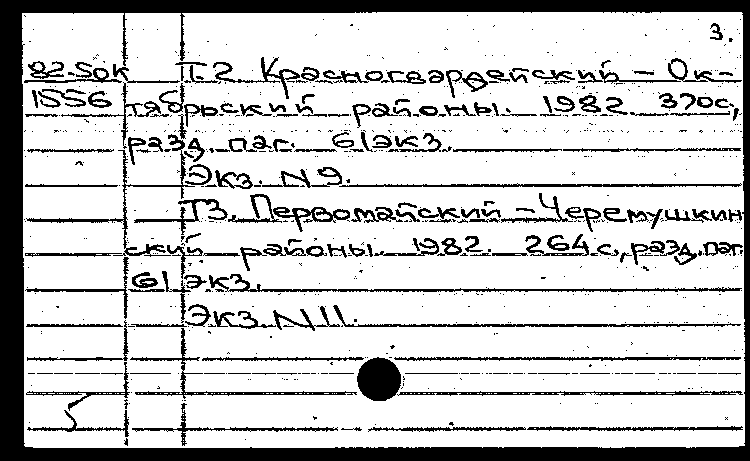 3.
82-5ок Т.2. Красногвардейский – Ок-
1556 тябрьский районы. 1982 370с,
разд. паг. 61экз.
Экз. N 9.
Т3. Первомайский – Черемушкин
ский районы. 1982. 264 с., разд. паг.
61 экз.
Экз. N 11.
5